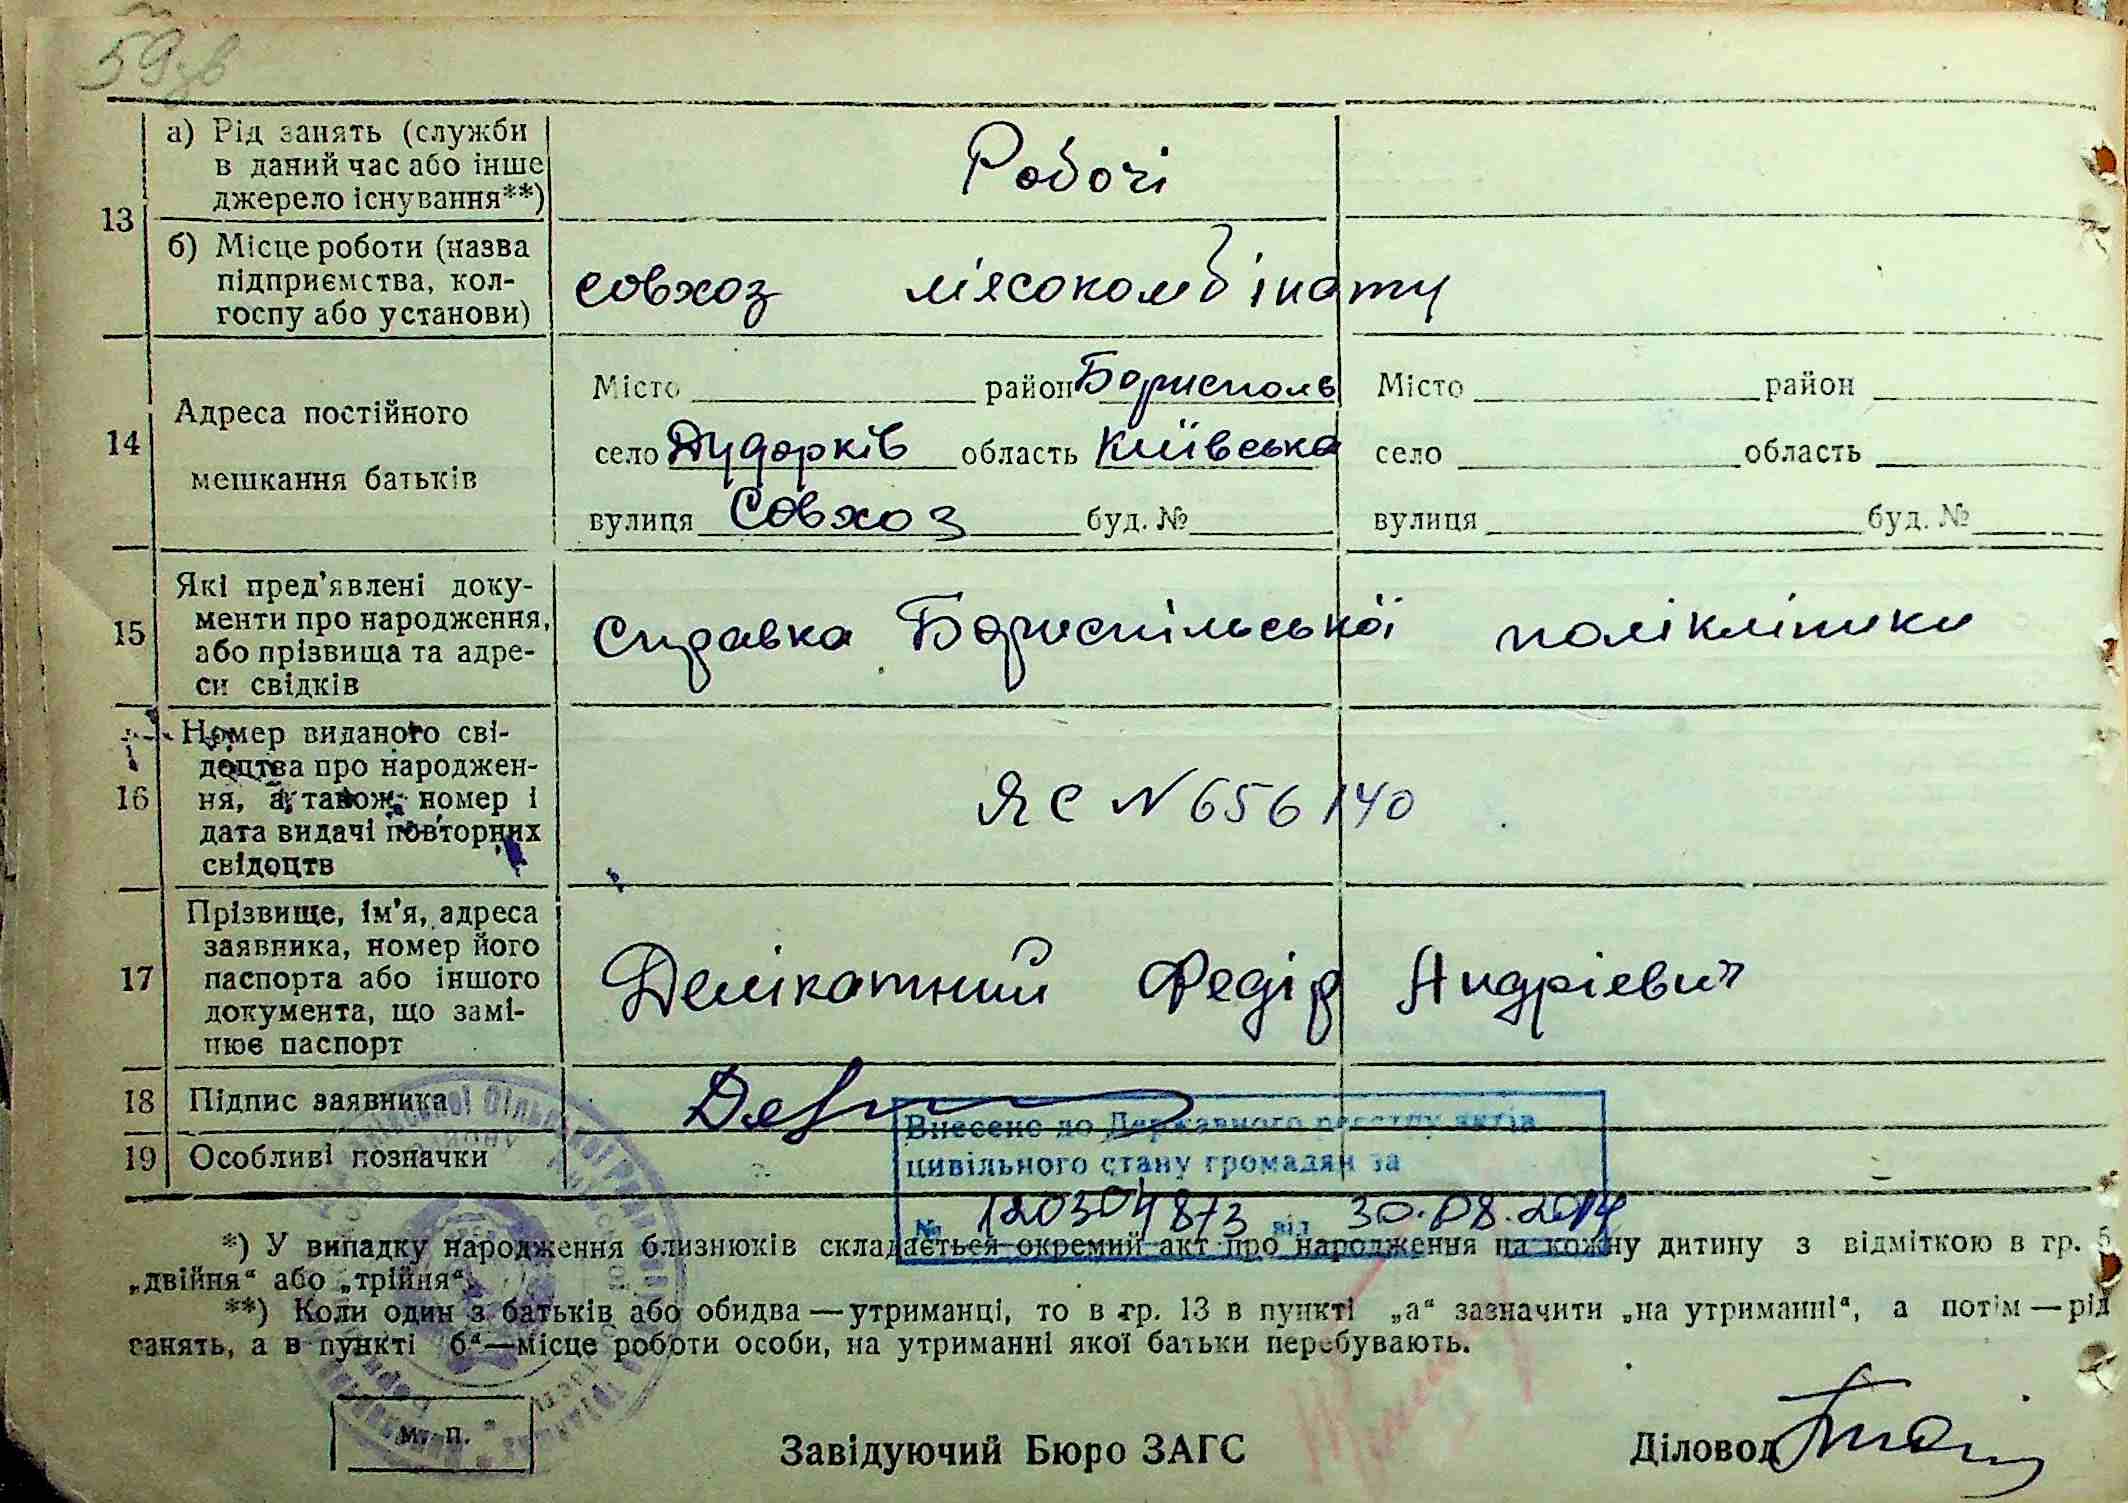 59зв
13
а) Рід занять (служби
в даний час або інше
джерело існування**)
Робочі
б) Місце роботи (назва
підприємства, кол-
госпу або установи)
совхоз мясокомбінату
14
Адреса постійного
мешкання батьків
Місто район Борисполь
село Дударків область Київська
вулиця Совхоз буд. №
Місто район
село область
вулиця буд. №
15
Які пред'явлені доку-
менти про народження,
або прізвища та адре-
си свідків
Справка Бориспільської поліклініки
16
Номер виданого сві-
доцтва про народжен-
ня, а також номер і
дата видачі повторних
свідоцтв
ЯС N 656140
17
Прізвище, ім'я, адреса
заявника, номер його
паспорта або іншого
документа, що замі-
нює паспорт
Делікатний Федір Андрієвич
18
Підпис заявника
19
Особливі позначки
Внесено до Державного реєстру актів
цивільного стану громадян за
№ від 30.08.2014
*) У випадку народження близнюків складається окремий акт про народження на кожну дитину з відміткою в гр. 5
„двійня“ або „трійня“.
**) Коли один з батьків або обидва — утриманці, то в гр. 13 в пункті „а“ зазначити „на утриманні“, а потім — рід
занять, а в пункті б“ — місце роботи особи, на утриманні якої батьки перебувають.
м. п.
Завідуючий Бюро ЗАГС
Діловод